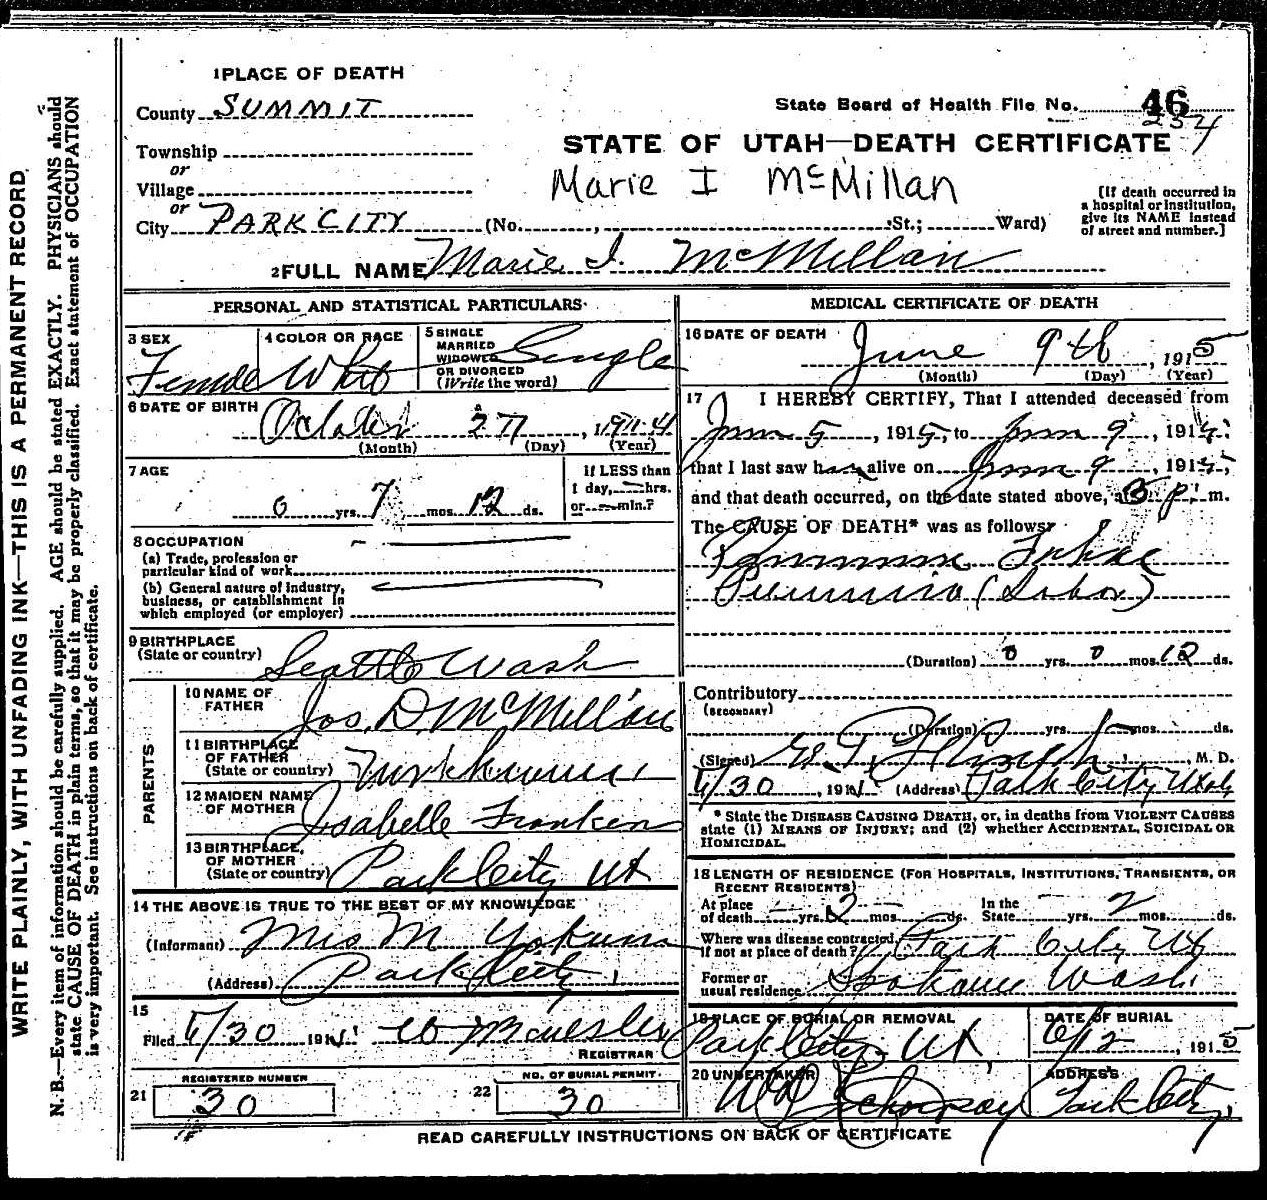 1 PLACE OF DEATH
County SUMMIT
State Board of Health File No. 46
234
Township
or
Village
or
City PARK CITY (No. , St.; Ward)
STATE OF UTAH—DEATH CERTIFICATE
Marie I McMillan
[If death occurred in
a hospital or institution,
give its NAME instead
of street and number.]
2 FULL NAME Marie I. McMillan
PERSONAL AND STATISTICAL PARTICULARS
3 SEX
Female
4 COLOR OR RACE
White
5 SINGLE
MARRIED
WIDOWED
OR DIVORCED
(Write the word)
Single
6 DATE OF BIRTH
October 27, 1914
(Month) (Day) (Year)
7 AGE
0 yrs. 7 mos. 12 ds.
If LESS than
1 day, hrs.
or min.?
8 OCCUPATION
(a) Trade, profession or
particular kind of work
(b) General nature of industry,
business, or establishment in
which employed (or employer)
9 BIRTHPLACE
(State or country)
Seattle Wash
PARENTS
10 NAME OF
FATHER
Jos. D. McMillan
11 BIRTHPLACE
OF FATHER
(State or country)
12 MAIDEN NAME
OF MOTHER
Isabelle
13 BIRTHPLACE
OF MOTHER
(State or country)
Park City Ut
14 THE ABOVE IS TRUE TO THE BEST OF MY KNOWLEDGE
(Informant) Mrs M
(Address) Park City,
15
Filed 6/30 191
REGISTRAR
REGISTERED NUMBER
21 30
NO. OF BURIAL PERMIT.
22 30
MEDICAL CERTIFICATE OF DEATH
16 DATE OF DEATH
June 9th, 1915
(Month) (Day) (Year)
17 I HEREBY CERTIFY, That I attended deceased from
June 5, 1915, to June 9, 1915,
that I last saw her alive on June 9, 1915,
and that death occurred, on the date stated above, at 3 p. m.
The CAUSE OF DEATH* was as follows:
Pneumonia (Lobar)
(Duration) 0 yrs. 0 mos. 12 ds.
Contributory
(SECONDARY)
(Duration) yrs. mos. ds.
(Signed) , M. D.
6/30, 191 (Address) Park City Utah
* State the DISEASE CAUSING DEATH, or, in deaths from VIOLENT CAUSES
state (1) MEANS OF INJURY; and (2) whether ACCIDENTAL, SUICIDAL OR
HOMICIDAL.
18 LENGTH OF RESIDENCE (FOR HOSPITALS, INSTITUTIONS, TRANSIENTS, OR
RECENT RESIDENTS)
At place
of death yrs. 2 mos. ds.
In the
State yrs. 2 mos. ds.
Where was disease contracted,
if not at place of death? Park City Ut
Former or
usual residence Spokane Wash.
19 PLACE OF BURIAL OR REMOVAL
Park City, Ut,
DATE OF BURIAL
6/12, 1915
20 UNDERTAKER
ADDRESS
Park City,
READ CAREFULLY INSTRUCTIONS ON BACK OF CERTIFICATE
WRITE PLAINLY, WITH UNFADING INK—THIS IS A PERMANENT RECORD
N. B.—Every item of information should be carefully supplied. AGE should be stated EXACTLY. PHYSICIANS should
state CAUSE OF DEATH in plain terms, so that it may be properly classified. Exact statement of OCCUPATION
is very important. See instructions on back of certificate.